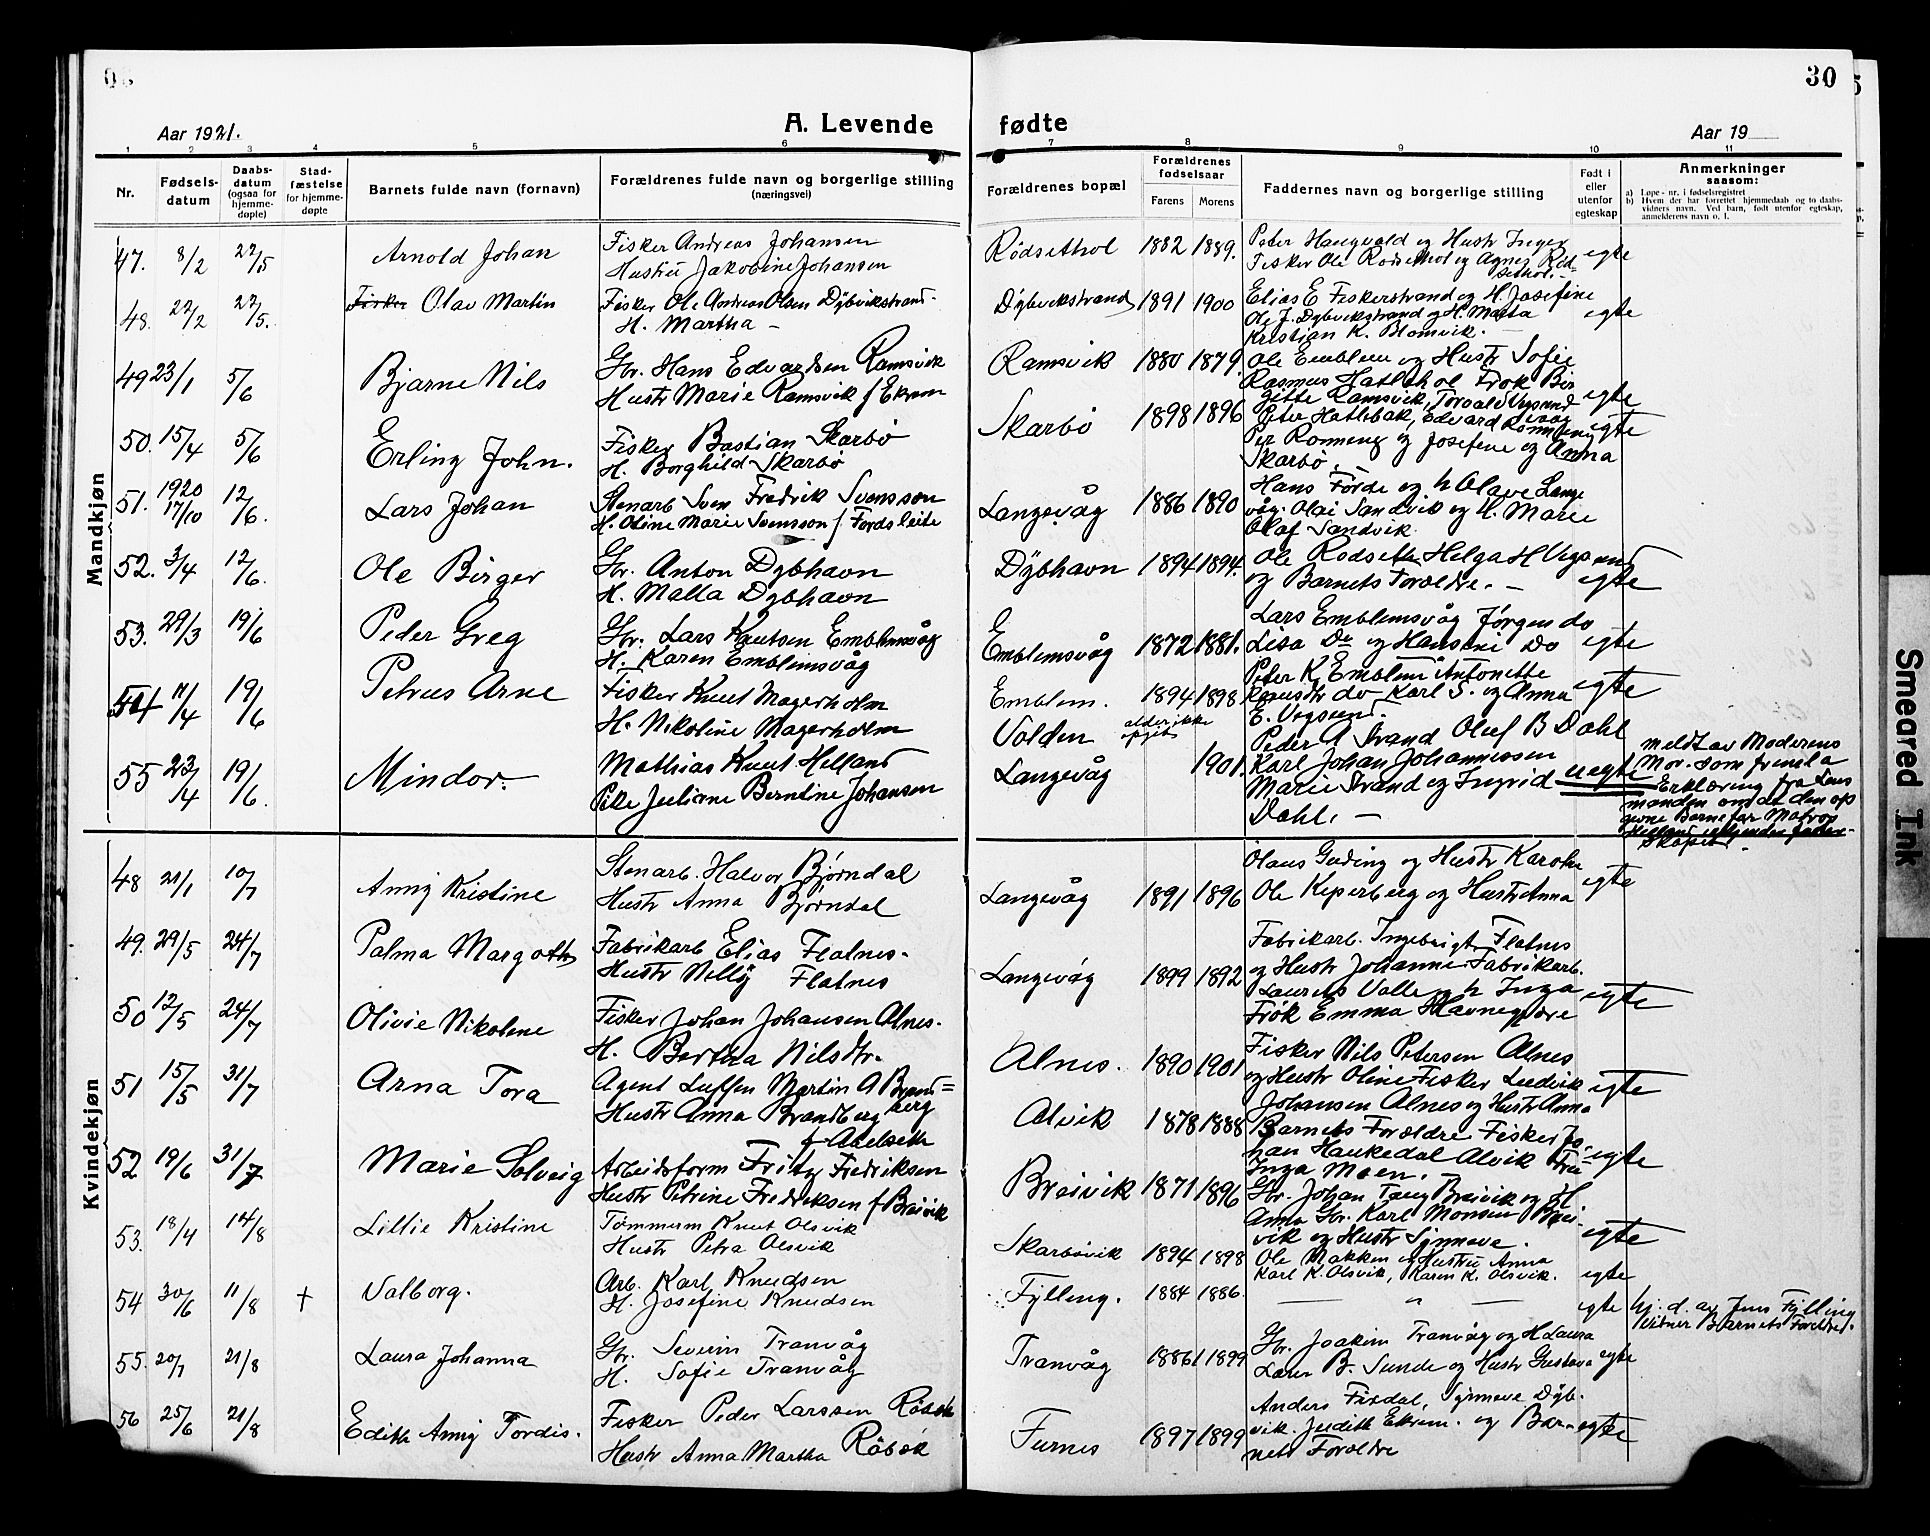 30
Aar 1921.
A. Levende
fødte
Aar 19
1 2 3 4 5 6 7 8 9 10 11
Nr.
Fødsels-
datum
Daabs-
datum
(ogsaa for
hjemme-
døpte)
Stad-
fæstelse
for hjemme-
døpte
Barnets fulde navn (fornavn)
Forældrenes fulde navn og borgerlige stilling
(næringsvei)
Forældrenes bopæl
Forældrenes
fødselsaar
Farens Morens
Faddernes navn og borgerlige stilling
Født i
eller
utenfor
egteskap
Anmerkninger
saasom:
a) Løpe-nr. i fødselsregistret
b) Hvem der har forrettet hjemmedaab og to daabs-
vidners navn. Ved barn, født utenfor egteskap,
anmelderens navn o. l.
Mandkjøn
47. 8/2 22/5 Arnold Johan
Fisker Andreas Johansen
Hustru Jakobine Johansen
Rødsethol 1882 1889.
Peter Haugvald og Hustr Inger
Fisker Ole Rødsethol og Agnes Rød-
sethol.-
egte
48. 22/2 22/5. Olav Martin
Fisker Ole Andreas Olsen Dybvikstrand.
H. Martha -
Dybvikstrand 1891 1900
Elias E Fiskerstrand og H. Josefine
Ole J. Dybvikstrand og H. Marta
Kristian K. Blomvik.
egte
49 23/1 5/6 Bjarne Nils
Gbr. Hans Edvardsen Ramsvik
Hustr Marie Ramsvik f Ekrem
Ramsvik 1880 1879.
Ole Emblem og Hustr Sofie
Rasmus Hatlehol Frøk Bir
gitte Ramsvik, Toroald Vegsund
egte
50. 15/4 5/6 Erling John.
Fisker Bastian Skarbø
H. Borghild Skarbø
Skarbø 1898 1896
Peter Hatlebak, Edvard Rønneng
Per Ronneng og Josefine og Anna
Skarbø.
egte
51. 1920 17/10 12/6. Lars Johan
Stenarb Sven Fredrik Svensson
H. Oline Marie Svensson f. Fordsleite
Langevåg 1886 1890
Hans Førde og h Olave Lange
våg. Olai Sandvik og H. Marie
Olaf Sandvik.
52. 3/4 12/6. Ole Birger
Gbr. Anton Dybhavn
H. Malla Dybhavn
Dybhavn 1894 1894.
Ole Rødseth Helga H Vegsund
og Barnets Forældre. -
egte
53. 29/3 19/6 Peder Greg
Gbr. Lars Knutsen Emblemsvåg
H. Karen Emblemsvåg
Emblemsvåg 1872 1881.
Lars Emblemsvåg Jørgen do
Lisa Do og Hansine Do
egte
54 11/4 19/6 Petrus Arne
Fisker Knut Magerholm
H. Nikoline Magerholm
Emblem. 1894 1898
Peter K. Emblem Antonette
do Karl S. og Anna
E. Vegsund.
egte
55 23/4 19/6. Mindor.
Mathias Knut Helland
Pike Juliane Berntine Johansen
Volden alder ikke
opgit
Langevåg 1901.
Peder A Strand Oluf B Dahl
Karl Johan Johannessen
Marie Strand og Ingrid
Dahl. -
uegte
Meldt av Moderens
Mor. som fremla
Erklæring fra Lens
manden om at den op
givne Barnefar
Helland
skapet.
Kvindekjøn
48 21/1 10/7 Anny Kristine
Stenarb. Halvor Bjørndal
Hustr Anna Bjørndal
Langevåg 1891 1896
Olaus Guding og Hustr Karoline
Ole Keperberg og Hustr Anna
egte
49. 29/5 24/7 Palma Margoth
Fabrikarb Elias Flatnes.
Hustr Nelly Flatnes
Langevåg 1899 1892
Fabrikarb. Ingebrigt Flatnes
og Hustr Johanne. Fabrikarb.
Laurits Valle og h Inga
Frøk Emma Havnegjære
egte
50 12/5 24/7 Olivie Nikoline
Fisker Johan Johansen Alnes.
H. Bertha Nilsdtr.
Alnes. 1890 1901
Fisker Nils Petersen Alnes
og Hustr Oline Fisker Ludvik
Johansen Alnes og Hustr Anna
egte
51 15/5 31/7 Arna Tora
Agent Luffsen Martin A Brand=
berg
Hustr Anna Brandberg
f Aaelseth
Alvik 1878 1888
Barnets Forældre Fisker Jo-
han Haukedal Alvik Fru
Inga Moen. -
egte
52 19/6 31/7 Marie Solveig
Arbeidsform Fritz Fredriksen
Hustr Petrine Fredriksen f Breivik
Breivik 1871 1896
Gbr. Johan Tang Breivik og H
Anna Gbr. Karl Monsen Brei-
vik og Hustr Synneve.
egte
53. 18/4 14/8 Lillie Kristine
Tømmerm Knut Olsvik
Hustr Petra Olsvik
Skarbøvik 1894 1898
Ole Makken og Hustru Anna
Karl K. Olsvik, Karen K. Olsvik.
egte
54 30/6 11/8 + Valborg.
Arb. Karl Knudsen
H. Josefine Knudsen
Fylling. 1884 1886.
— " —
egte
hj. d. av Jens Fylling
Vitner Barnets Foreldre.
55. 20/7 21/8 Laura Johanna
Gbr. Severin Tranvåg
H. Sofie Tranvåg
Tranvåg 1886 1899
Gbr. Joakim Tranvåg og H Laura
Laur B. Sunde og Hustr Gustava
egte
56 25/6 21/8 Edith Anny Tordis.
Fisker Peder Larssen Røbek
Hustr Anna Martha Røbek
Furnes 1897 1899
Anders Fisdal, Synneve Dyb-
vik. Judith Ekrem. og Bar-
nets Forældre
egte
Smeared Ink